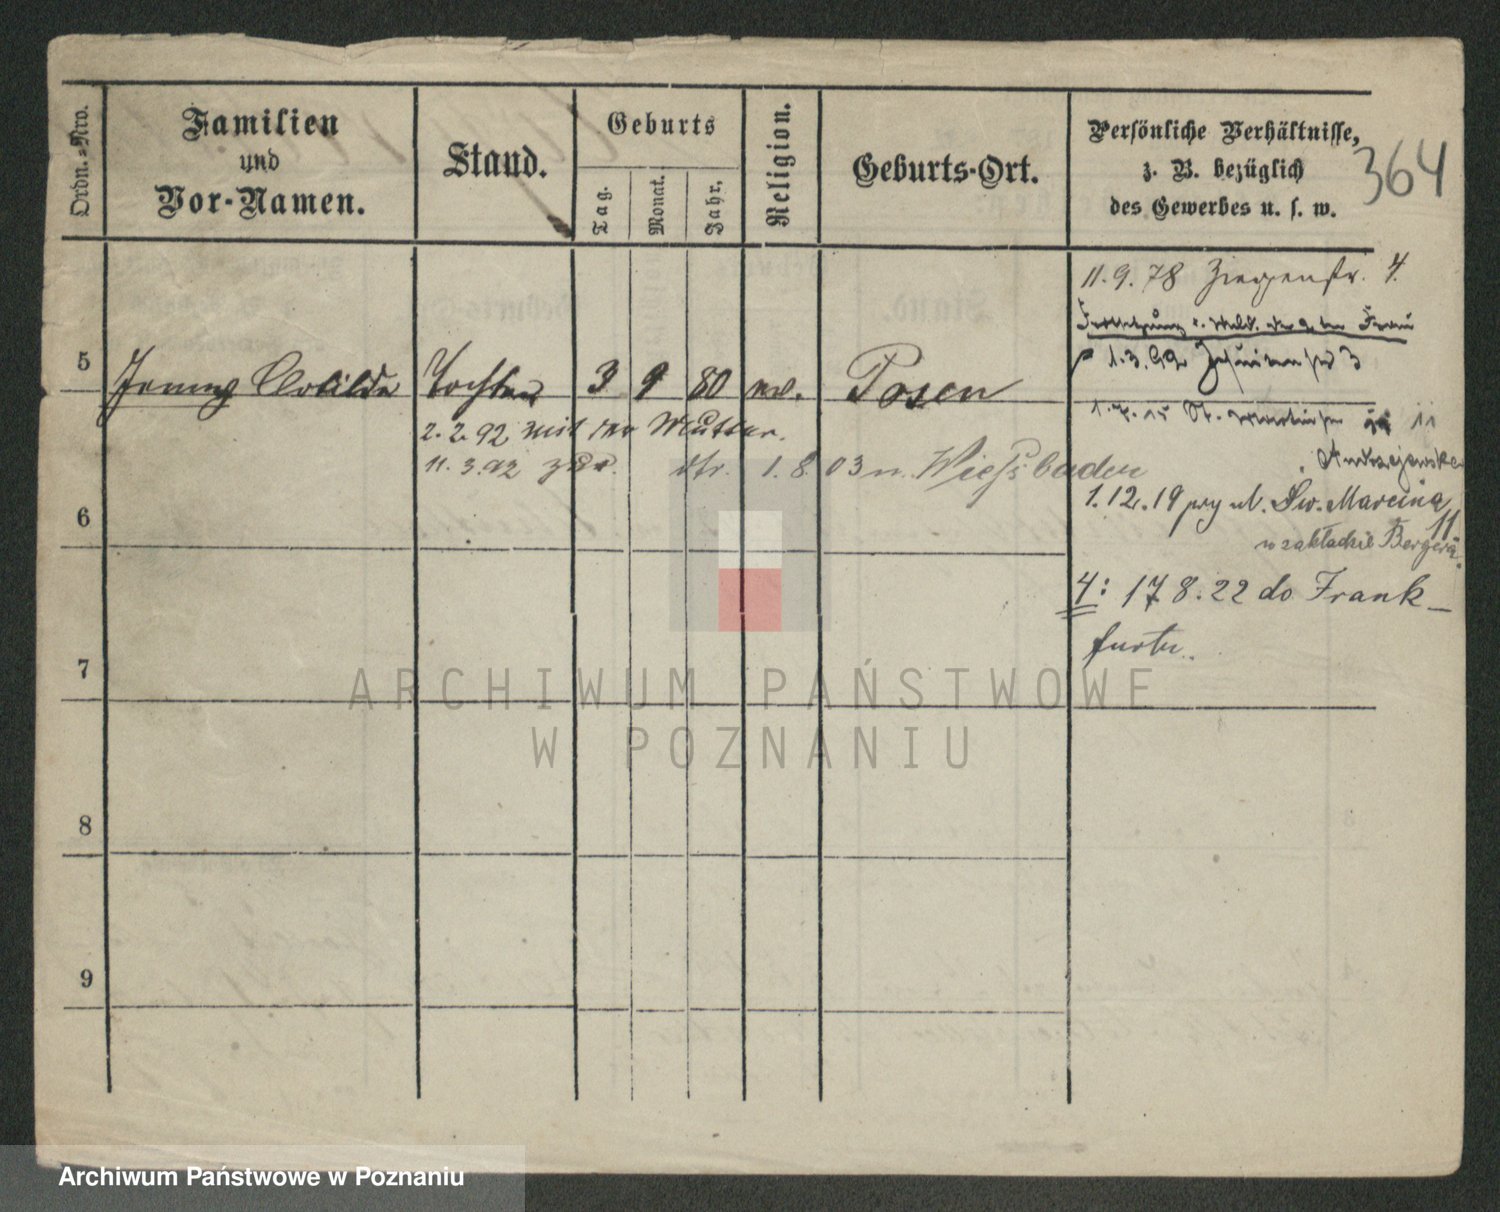 Ordn.-Nro.
Familien
und
Vor-Namen.
Stand.
Geburts
Tag.
Monat.
Jahr.
Religion.
Geburts-Ort.
Persönliche Verhältnisse,
z. B. bezüglich
des Gewerbes u. s. w.
364
11.9.78 Ziegenstr. 4.
Frau
1.3.92
5
Jenny Clotilde Tochter 3 9 80 Posen
2.2.92 mit der Mutter.
11.3.92 1.8.03 n. Wiesbaden
St. 11
Andrzejewska
6
1.12.19 przy ul. Św. Marcina
11
w zakładzie Bergera.
4: 17 8.22 do Frank-
furtu.
7
ARCHIWUM PAŃSTWOWE
W POZNANIU
8
9
Archiwum Państwowe w Poznaniu